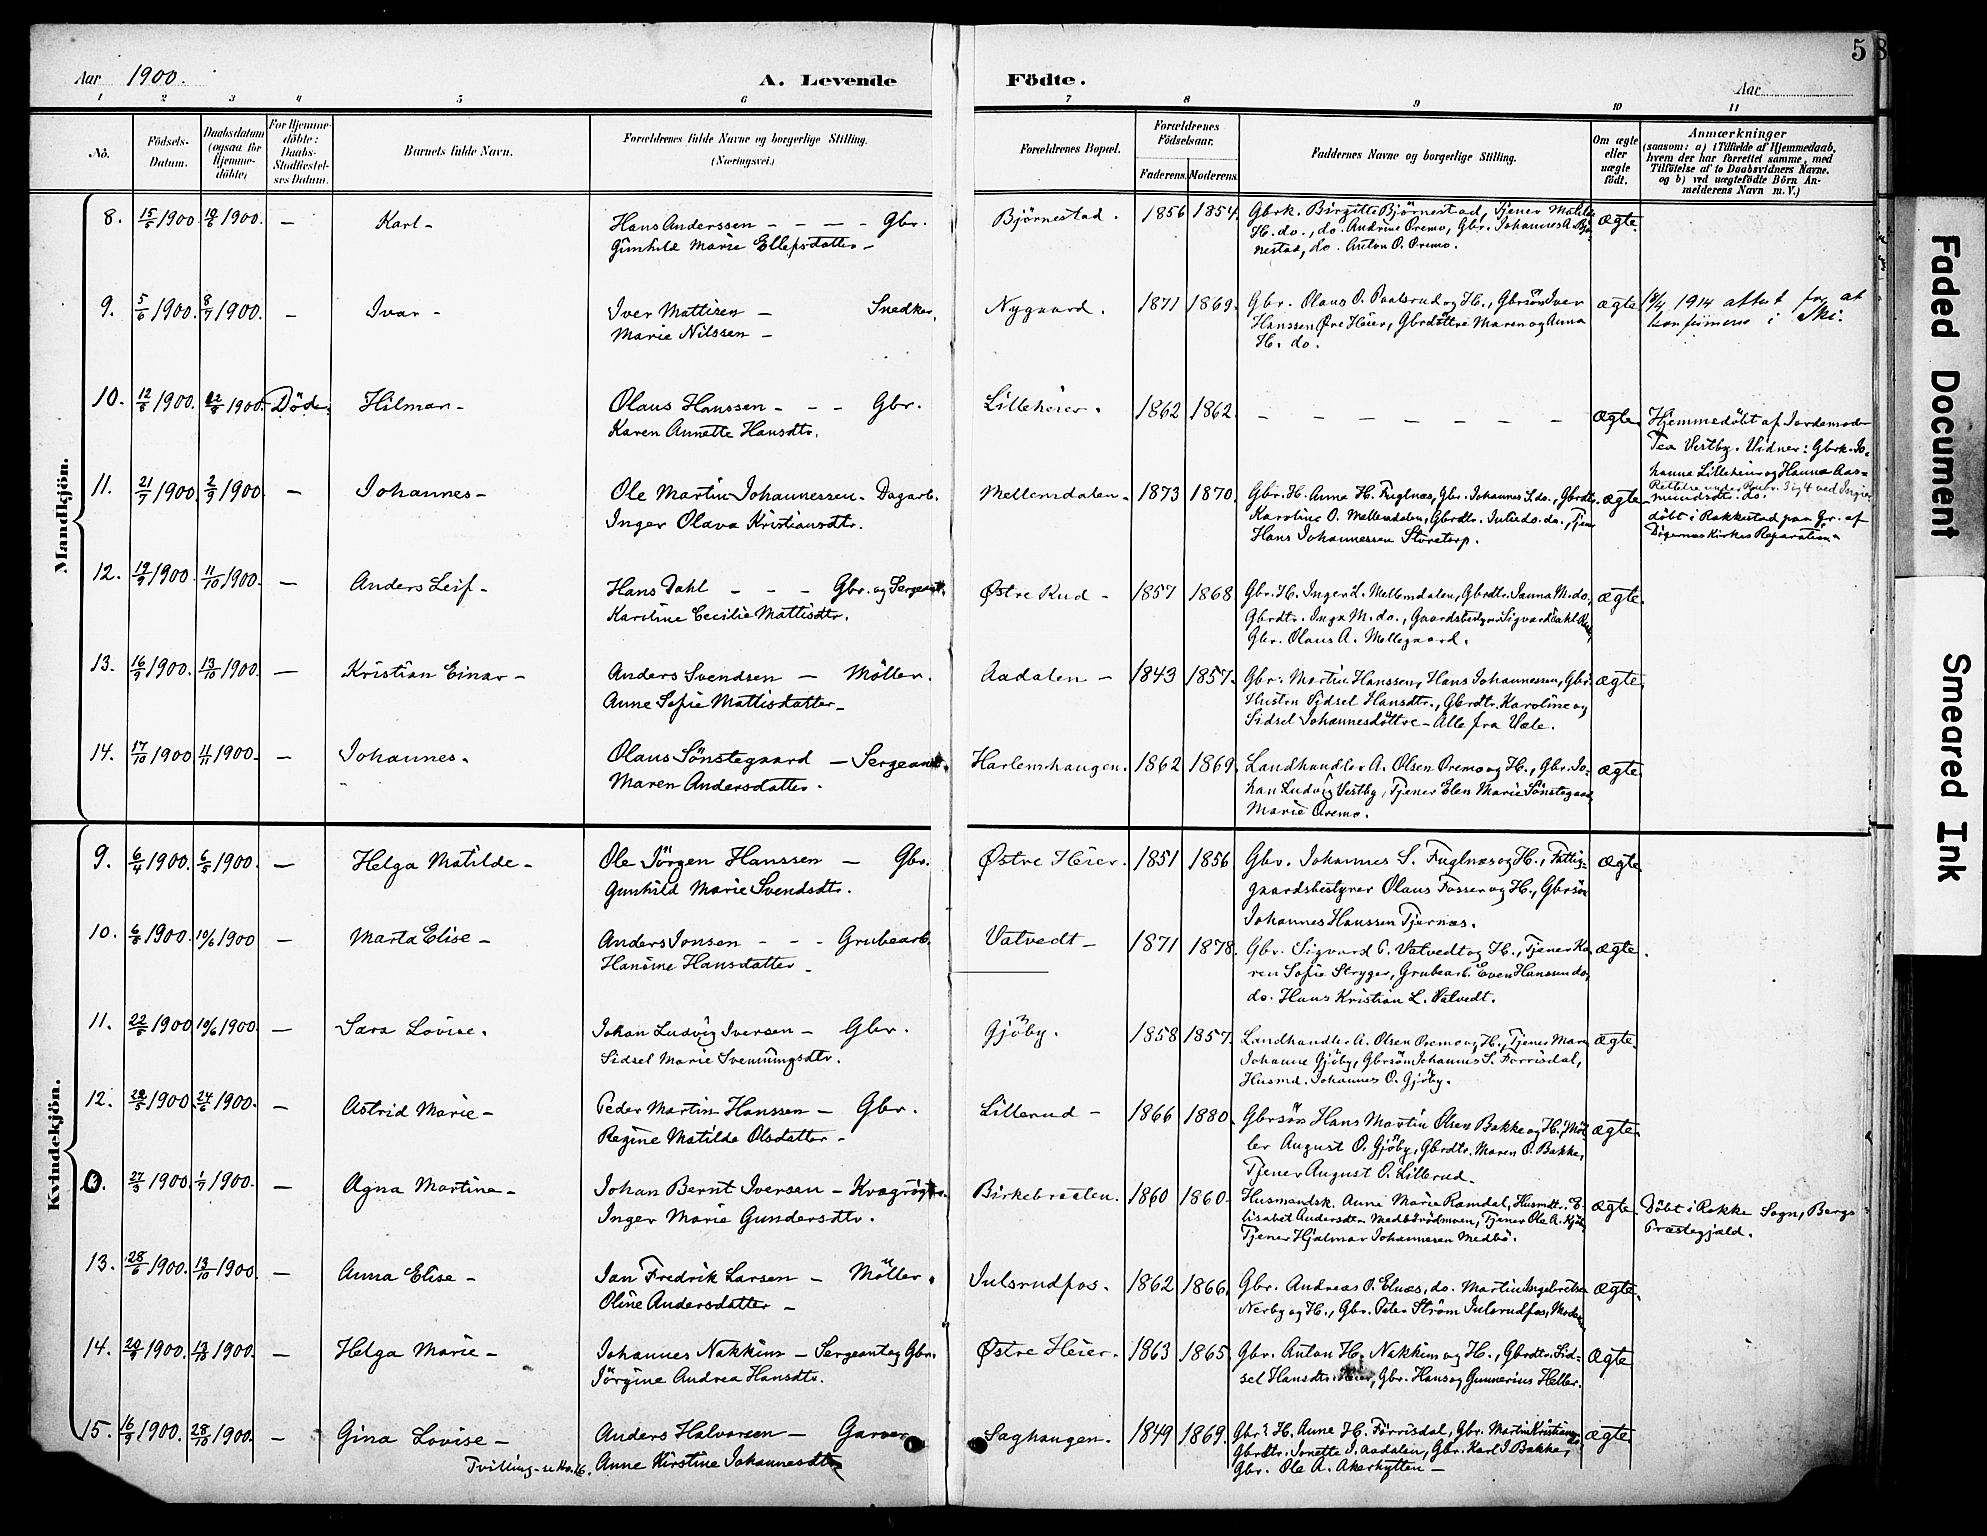 Aar 1900. A. Levende Födte. Aar 5
1 2 3 4 5 6 7 8 9 10 11
No. Födsels-Datum. Daabsdatum (ogsaa for Hjemme-döbte) For Hjemme-döbte: Daabs-Stadfæstel-ses Datum. Barnets fulde Navn. Forældrenes fulde Navne og borgerlige Stilling. (Næringsvei.) Forældrenes Bopæl. Forældrenes Födselsaar. Faderens. Moderens. Faddernes Navne og borgerlige Stilling. Om ægte eller uægte födt. Anmærkninger (saasom: a) i Tilfælde af Hjemmedaab, hvem der har forrettet samme, med Tilföielse af to Daabsvidners Navne. og b) ved uægtefödte Börn An-melderens Navn m. V.)
Mandkjön.
8. 15/5 1900 1900. – Karl – Hans Anderssen – – – Gbr. Bjørnestad. 1856 1854. Gbrk. Birgitte Bjørnestad, Tjener Matilde ægte.
Gunhild Marie Ellefsdatter – H. do., do. Andrine Oremo, Gbr. Johannes A. Bjø-
nestad, do. Anton O. Oremo.
9. 5/6 1900. 8/7 1900. – Ivar – Iver Mattisen – Snedker. Nygaard. 1871 1869. Gbr. Olaus O. Paalsrud og H., Gbrsön Iver ægte 1914 attest for at
Marie Nilssen – Hanssen Øre Heier, Gbrdöttre Maren og Anna konfirmeres i Ski.
H. do.
10. 12/8 1900. 1900. Död. Hilmar – Olaus Hanssen – – – Gbr. Lilleheier. 1862 1862. – – – – – – ægte. Hjemmedöbt af Jordemoder
Karen Annette Hansdtr. Tea Vestby. Vidner: Gbrk. Jo-
hanna Lilleheier og Hanna Aas-
mundsdtr. do.
11. 21/7 1900. 2/9 1900. – Johannes – Ole Martin Johannessen – Dagarb. Mellemdalen – 1873 1870. Gbr. H. Anne H. Fuglnæs, Gbr. Johannes S. do., Gbrdtr. ægte
Inger Olava Kristiansdtr. Karoline O. Mellemdalen, Gbrdtr. Julie do. do., Tjener döbt i Rakkestad paa Gr. af
Hans Johannessen Storetorp. Degernes Kirkes Reparation.
12. 19/9 1900 11/10 1900. – Anders Leif – Hans Dahl – – – Gbr. og Sergeant. Østre Rud – 1857 1868 Gbr. H. Inger L. Mellemdalen, Gbrdtr. Janna M. do., ægte.
Karoline Cecilie Mattisdtr. Gbrdtr. Inga M. do., Gaardsbestyrer Sigvard Dahl Rud,
Gbr. Olaus A. Mellegaard.
13. 16/9 1900. 13/10 1900. – Kristian Einar – Anders Svendsen – Möller. Aadalen – 1843 1857. Gbr. Martin Hanssen, Hans Johannessen, Gbr. ægte.
Anne Sofie Mattisdatter – Hustru Sidsel Hansdtr., Gbrdtr. Karoline og
Sidsel Johannesdöttre – Alle fra Vale.
14. 17/10 1900 11/11 1900. – Johannes. Olaus Sönstegaard – Sergeant. Harlemshaugen. 1862 1869. Landhandler A. Olsen Oremo og H., Gbr. Jo- ægte
Maren Andersdatter. han Ludvig Vestby, Tjener Elen Marie Sönstegaard,
Marie Oremo.
Kvindekjön.
9. 6/4 1900. 6/5 1900. – Helga Matilde – Ole Jörgen Hanssen – Gbr. Østre Heier. 1851 1856 Gbr. Johannes S. Fuglnæs og H., Fattig- ægte
Gunhild Marie Svendsdtr. gaardsbestyrer Olaus Fosser og H., Gbrsön
Johannes Hanssen Tjernæs.
10. 6/5 1900. 10/6 1900 – Marta Elise – Anders Jonsen – – – Grubearb. Vatvedt – 1871 1878. Gbr. Sigvard P. Vatvedt og H., Tjener Ka- ægte.
Hansine Hansdatter – ren Sofie Stryger, Grubearb. Even Hanssen do,
do. Hans Kristian L. Vatvedt.
11. 22/5 1900 10/6 1900. – Sara Lovise. Johan Ludvig Iversen – Gbr. Gjöby. 1858 1857. Landhandler A. Olsen Oremo og H., Tjener Maren ægte.
Sidsel Marie Svenningsdtr. Johanne Gjöby, Gbrsön Johannes S. Forrisdal,
Husmd. Johannes O. Gjöby.
12. 28/5 1900. 24/6 1900. – Astrid Marie – Peder Martin Hanssen – Gbr. Lillerud – 1866 1880. Gbrsön Hans Martin Olsen Bakke og H., Möl- ægte.
Regine Matilde Olsdatter – ler August O. Gjöby, Gbrdtr. Maren O. Bakke,
Tjener August O. Lillerud –
27/5 1900. 1/7 1900. – Agna Martine – Johan Bernt Iversen – Kvægrögter. Birkebraaten. 1860 1860. Husmandsk. Anne Marie Ramdal, Husmdt. E- ægte. Döbt i Rokke Sogn, Bergs
Inger Marie Gundersdtr. lisabet Andersdtr. , Tjener Ole A. Præstegjæld.
Tjener Hjalmar Johannesen Medbö.
13. 28/6 1900. 13/10 1900. – Anna Elise – Jan Fredrik Larsen – Möller. Julsrudfos. 1862 1866. Gbr. Andreas O. Elnæs, do. Martin Ingebretsen ægte.
Oline Andersdatter – Nerby og H., Gbr. Peter Ström Julsrudfos, Moderen
14. 20/9 1900. 13/10 1900. – Helga Marie – Johannes Nakkim – Sergeant og Gbr. Østre Heier. 1863 1865. Gbr. Anton H. Nakkim og H., Gbrdtr. Sid- ægte
Jörgine Andrea Hansdtr. sel Hansdtr. Heier, Gbr. Hans og Gunnerius Heller.
15. 16/9 1900. 28/10 1900. – Gina Lovise – Anders Halvorsen – Garver Saghaugen. 1849 1869. Gbr. H. Anne H. Forrisdal, Gbr. Martin Kristiansen do. ægte.
Tvilling – se No. 16. Anne Kirstine Johannesdtr. Gbrdtr. Jonette J. Aadalen, Gbr. Karl J. Bakke,
Gbr. Ole A. Akerhytten –
Faded Document
Smeared Ink